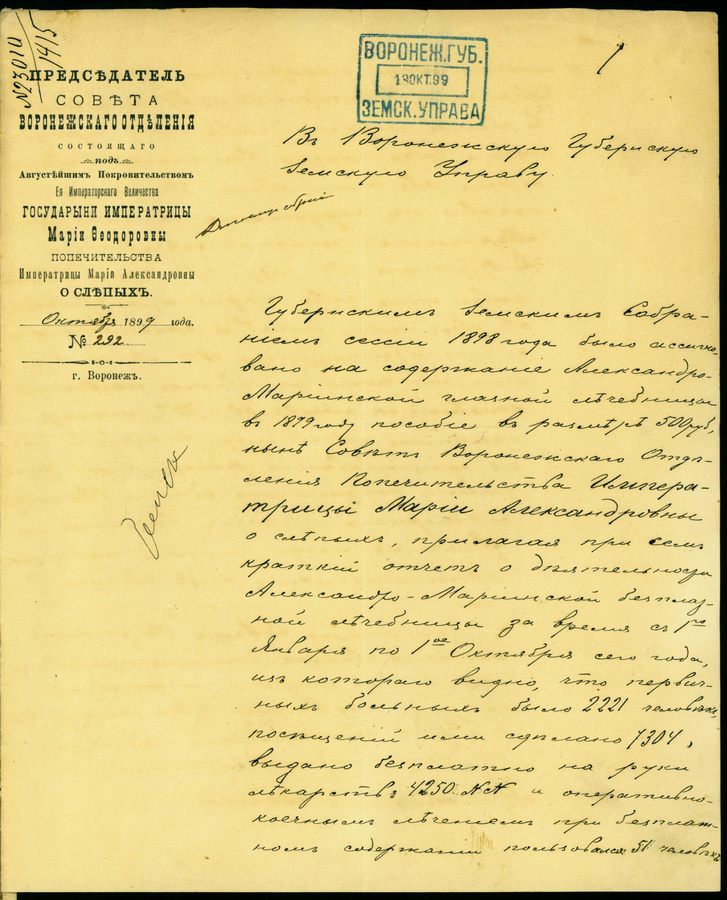 №23010
1415
ПРЕДСѢДАТЕЛЬ
СОВѢТА
ВОРОНЕЖСКАГО ОТДѢЛЕНІЯ
СОСТОЯЩАГО
подъ
Августѣйшимъ Покровительствомъ
Ея Императорскаго Величества
ГОСУДАРЫНИ ИМПЕРАТРИЦЫ
Маріи Ѳеодоровны
ПОПЕЧИТЕЛЬСТВА
Императрицы Маріи Александровны
О СЛѢПЫХЪ.
Октября 1899 года.
№ 292
г. Воронежъ.
ВОРОНЕЖ. ГУБ.
19 ОКТ. 99
ЗЕМСК. УПРАВА
Въ Воронежскую Губернскую
Земскую Управу.
Губернскимъ Земскимъ Собра-
ніемъ сессіи 1898 года было ассигно-
вано на содержаніе Александро-
Маріинской глазной лѣчебницы
въ 1899 году пособіе въ размѣрѣ 500 руб,
нынѣ Совѣтъ Воронежскаго Отдѣ-
ленія Попечительства Импера-
трицы Маріи Александровны
о слѣпыхъ, прилагая при семъ
краткій отчетъ о дѣятельности
Александро-Маріинской безплат-
ной лѣчебницы за время съ 1го
Января по 1ое Октября сего года,
изъ котораго видно, что первич-
ныхъ больныхъ было 2221 человѣкъ,
посѣщеній ими сдѣлано 7304,
выдано безплатно на руки
лѣкарствъ 4250 №№ и оперативно-
коечнымъ лѣченіемъ при безплат-
номъ содержаніи пользовался 51 человѣкъ